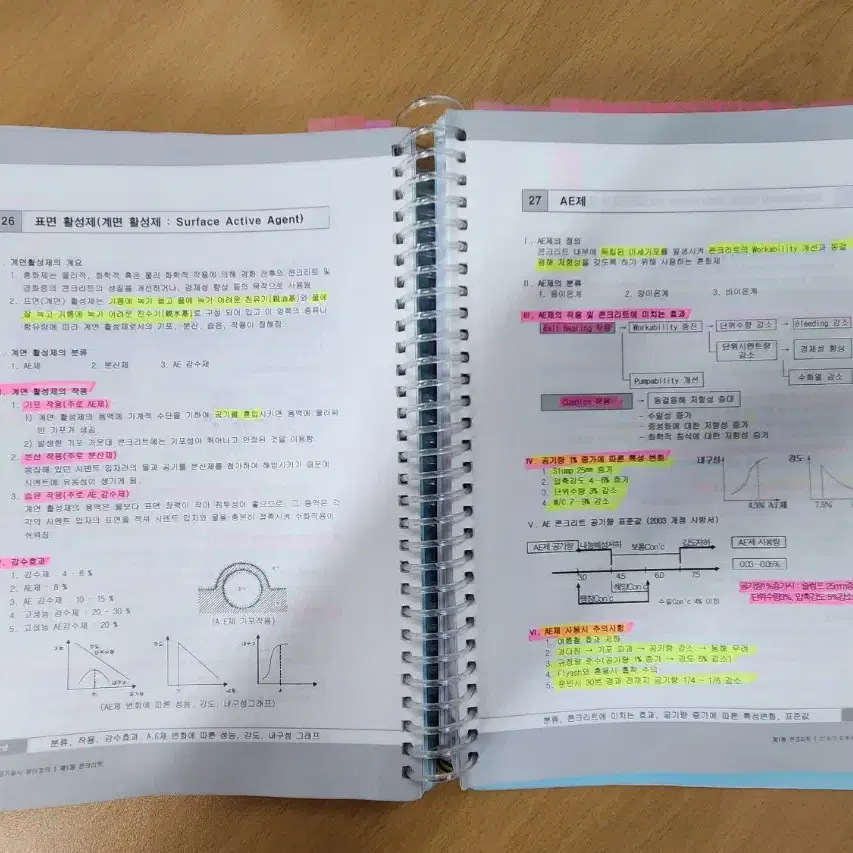 26 표면 활성제(계면 활성제 : Surface Active Agent)
. 계면활성제의 개요
1. 혼화제는 물리적, 화학적 혹은 물리 화학적 작용에 의해 경화 전후의 콘크리트 및
경화중의 콘크리트의 성질을 개선하거나, 경제성 향상 등의 목적으로 사용됨
2. 표면(계면) 활성제는 기름에 녹기 쉽고 물에 녹기 어려운 친유기(親油基)와 물에
잘 녹고 기름에 녹기 어려운 친수기(親水基)로 구성 되어 있고 이 양쪽의 종류나
함유량에 따라 계면 활성제로서의 기포, 분산, 습윤, 작용이 정해짐
. 계면 활성제의 분류
1. AE제 2. 분산제 3. AE 감수제
. 계면 활성제의 작용
1. 기포 작용(주로 AE제)
1) 계면 활성제의 용액에 기계적 수단을 가하여 공기를 혼입시키면 용액에 둘러싸
인 기포가 생김
2) 발생한 기포 가운데 콘크리트에는 기포성이 뛰어나고 안정된 것을 이용함
2. 분산 작용(주로 분산제)
응집해 있던 시멘트 입자간의 물과 공기를 분산제를 첨가하여 해방시키기 때문에
시멘트에 유동성이 생기게 됨
3. 습윤 작용(주로 AE 감수제)
계면 활성제의 용액은 물보다 표면 장력이 작아 침투성이 좋으므로, 그 용액은 각
각의 시멘트 입자의 표면을 적셔 시멘트 입자와 물을 충분히 접촉시켜 수화작용이
쉬워짐
. 감수효과
1. 감수제 : 4 - 6 %
2. AE제 : 8 %
3. AE 감수제 : 10 - 15 %
4. 고성능 감수제 : 20 - 30 %
5. 고성능 AE감수제 : 20 %
(A.E제 기포작용)
강도
내구성
공기량
(AE제 변화에 따른 성능, 강도, 내구성그래프)
분류, 작용, 감수효과, A.E제 변화에 따른 성능, 강도, 내구성 그래프
제1절 콘크리트
27 AE제
I. AE제의 정의
콘크리트 내부에 독립된 미세기포를 발생시켜 콘크리트의 Workability 개선과 동결
융해 저항성을 갖도록 하기 위해 사용하는 혼화제
II. AE제의 분류
1. 음이온계 2. 양이온계 3. 비이온계
III. AE제의 작용 및 콘크리트에 미치는 효과
Ball Bearing 작용 → Workability 증진 → 단위수량 감소 → Bleeding 감소
단위시멘트량 감소 경제성 향상
Pumpability 개선 수화열 감소
Cushion 작용 → 동결융해 저항성 증대
- 수밀성 증가
- 중성화에 대한 저항성 증가
- 화학적 침식에 대한 저항성 증가
IV. 공기량 1% 증가에 따른 특성 변화
1. Slump 25mm 증가
2. 압축강도 4-6% 감소
3. 단위수량 3% 감소
4. W/C 7-9% 감소
내구성 강도
4.5% A.E제 7.5%
V. AE 콘크리트 공기량 표준값 (2003 개정 시방서)
AE제 공기량 내동해성저하 보통Con'c 강도저하 AE제 사용량
3.0 4.5 6.0 7.5 0.03 - 0.05%
포장Con'c 해양Con'c 수밀Con'c 4% 이하
공기량1%증가시 : 슬럼프 25mm증
단위수량3%, 압축강도 5%감소
VI. AE제 사용시 주의사항
1. 여름철 효과 저하
2. 과다짐 → 기포 파괴 → 공기량 감소 → 동해 우려
3. 규정량 준수(공기량 1% 증가 → 강도 5% 감소)
4. Flyash와 혼용시 흡착 주의
5. 운반시 30분 경과 전까지 공기량 1/4 - 1/6 감소
분류, 콘크리트에 미치는 효과, 공기량 증가에 따른 특성변화, 표준값
제1절 콘크리트